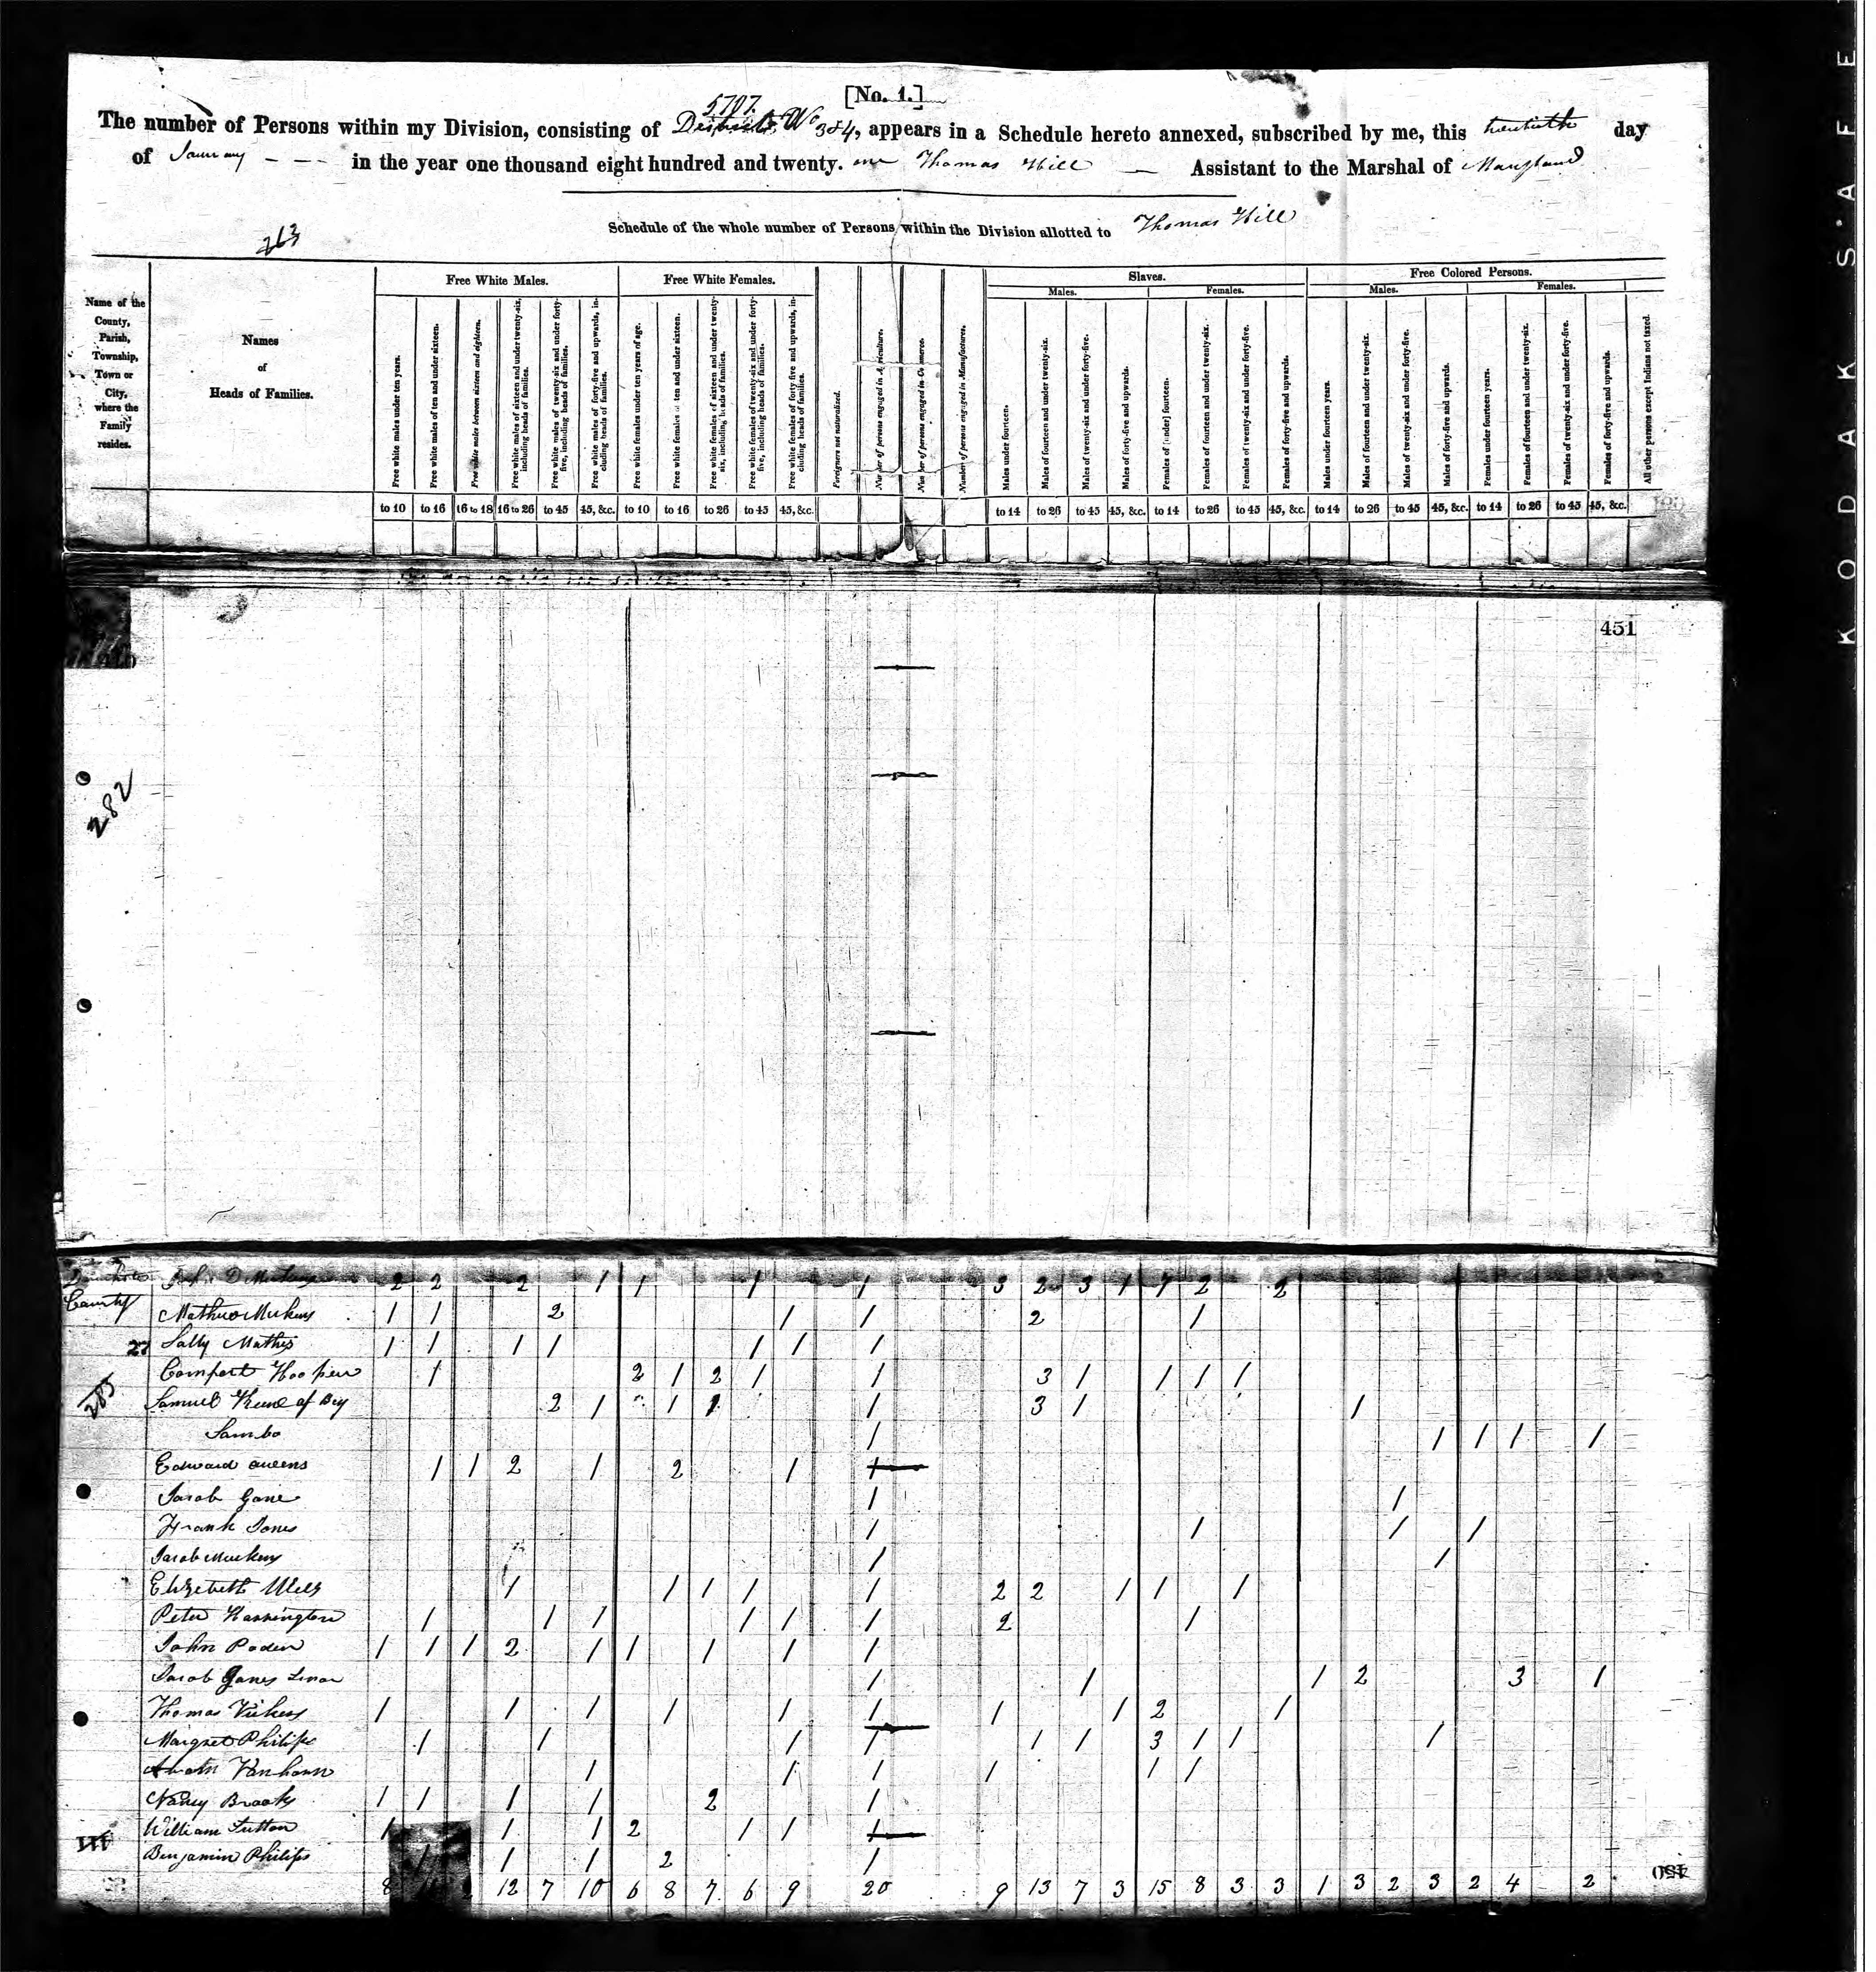 [No. 1.]
5707
The number of Persons within my Division, consisting of Districts No 3 & 4, appears in a Schedule hereto annexed, subscribed by me, this twentieth day
of January - - - in the year one thousand eight hundred and twenty. one Thomas Hill — Assistant to the Marshal of Maryland
263
Schedule of the whole number of Persons within the Division allotted to Thomas Hill
Name of the County, Parish, Township, Town or City, where the Family resides.
Names of Heads of Families.
Free White Males.
Free White Females.
Slaves.
Free Colored Persons.
Males. Females. Males. Females.
Free white males under ten years.
Free white males of ten and under sixteen.
Free white males between sixteen and eighteen.
Free white males of sixteen and under twenty-six, including heads of families.
Free white males of twenty-six and under forty-five, including heads of families.
Free white males of forty-five and upwards, including heads of families.
Free white females under ten years of age.
Free white females of ten and under sixteen.
Free white females of sixteen and under twenty-six, including heads of families.
Free white females of twenty-six and under forty-five, including heads of families.
Free white females of forty five and upwards, including heads of families.
Foreigners not naturalized.
Number of persons engaged in Agriculture.
Number of persons engaged in Commerce.
Number of persons engaged in Manufactures.
Males under fourteen.
Males of fourteen and under twenty-six.
Males of twenty-six and under forty-five.
Males of forty-five and upwards.
Females of [under] fourteen.
Females of fourteen and under twenty-six.
Females of twenty-six and under forty-five.
Females of forty-five and upwards.
Males under fourteen years.
Males of fourteen and under twenty-six.
Males of twenty-six and under forty-five.
Males of forty-five and upwards.
Females under fourteen years.
Females of fourteen and under twenty-six.
Females of twenty-six and under forty-five.
Females of forty-five and upwards.
All other persons except Indians not taxed.
to 10 to 16 16 to 18 16 to 26 to 45 45, &c. to 10 to 16 to 26 to 45 45, &c. to 14 to 26 to 45 45, &c. to 14 to 26 to 45 45, &c. to 14 to 26 to 45 45, &c. to 14 to 26 to 45 45, &c.
451
282
D 2 2 2 1 1 1 1 3 2 3 1 7 2 2
County 1 1 2 1 1 2 1
27 Sally Mathis 1 1 1 1 1 1 1
Comfort Hooper 1 2 1 2 1 1 3 1 1 1 1
283 Samuel Keene of Bry 2 1 1 1 3 1 1
Sambo 1 1 1 1 1
Edward Queens 1 1 2 1 2 1 1
Jacob Gane 1 1
Frank Jones 1 1 1 1
Jacob 1 1
Elizebeth 1 1 1 1 1 2 2 1 1 1
Peter Harrington 1 1 1 1 1 1 2 1
John Poden 1 1 1 2 1 1 1 1 1
Jacob 1 1 1 2 3 1
Thomas Vickers 1 1 1 1 1 1 1 1 2 1
Margret Philips 1 1 1 1 1 1 3 1 1 1
Vanhorn 1 1 1 1 1 1
Nancy Brooks 1 1 1 1 2 1
William Sutton 1 1 1 2 1 1 1
Benjamin Philips 1 1 1 2 1
8 12 7 10 6 8 7 6 9 20 9 13 7 3 15 8 3 3 1 3 2 3 2 4 2
450
KODAK S'AFE